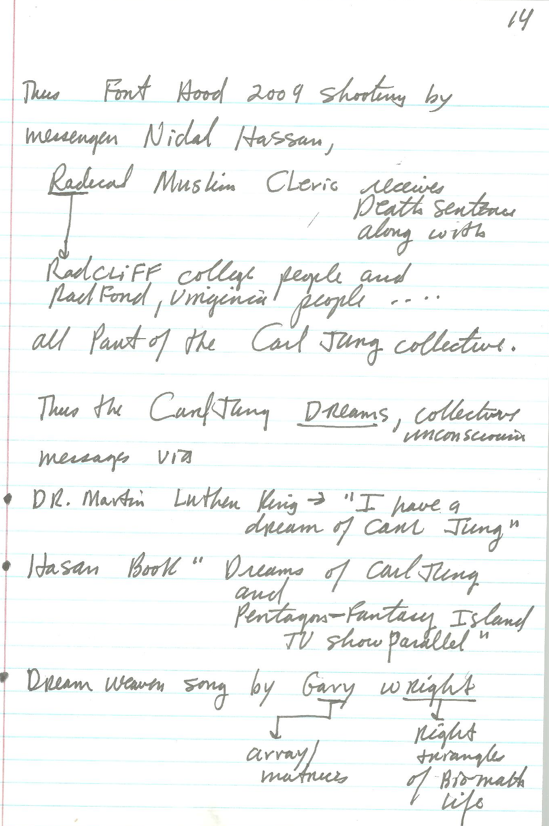 14
Thus Font Hood 2009 shooting by
messenger Nidal Hassan,
Radical Muslim Cleric receives
Death sentence
along with
Radcliff college people and
Radford, Virginia people ....
all Part of the Carl Jung collective.
Thus the Carl Jung Dreams, collective
unconscious
messages via
• DR. Martin Luther King → "I have a
dream of Carl Jung"
• Hasan Book " Dreams of Carl Jung
and
Pentagon-Fantasy Island
TV show parallel"
• Dream weaver song by Gary wright
array/
matrices
Right
triangles
of Bio-math
life